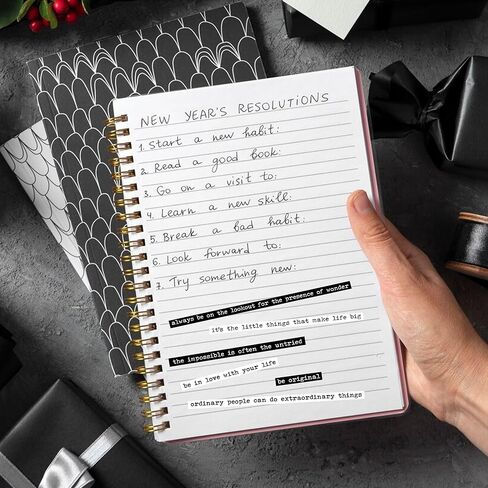 NEW YEAR'S RESOLUTIONS
1. Start a new habit:
2. Read a good book:
3. Go on a visit to:
4. Learn a new skill:
5. Break a bad habit:
6. Look forward to:
7. Try something new:
always be on the lookout for the presence of wonder
it's the little things that make life big
the impossible is often the untried
be in love with your life
be original
ordinary people can do extraordinary things